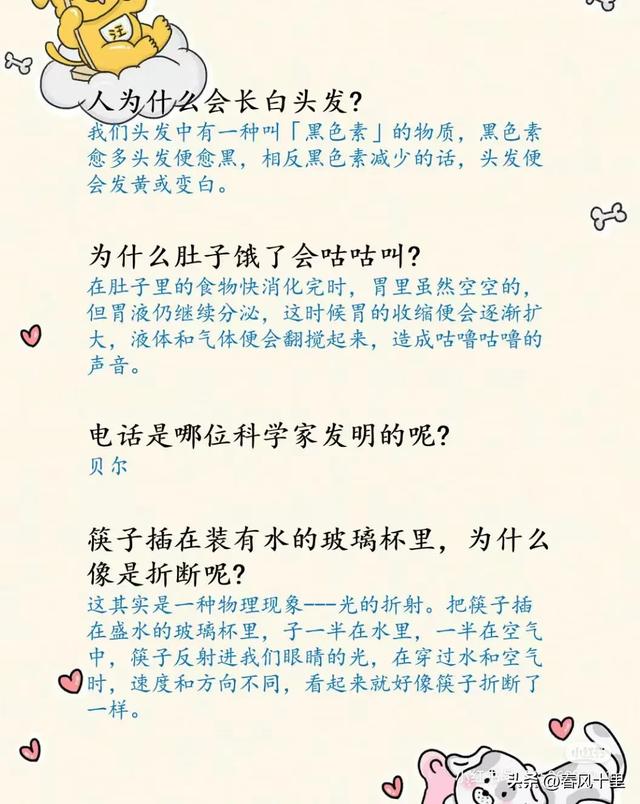 汪
人为什么会长白头发?
我们头发中有一种叫「黑色素」的物质，黑色素
愈多头发便愈黑，相反黑色素减少的话，头发便
会发黄或变白。
为什么肚子饿了会咕咕叫?
在肚子里的食物快消化完时，胃里虽然空空的，
但胃液仍继续分泌，这时候胃的收缩便会逐渐扩
大，液体和气体便会翻搅起来，造成咕噜咕噜的
声音。
电话是哪位科学家发明的呢?
贝尔
筷子插在装有水的玻璃杯里，为什么
像是折断呢?
这其实是一种物理现象---光的折射。把筷子插
在盛水的玻璃杯里，子一半在水里，一半在空气
中，筷子反射进我们眼睛的光，在穿过水和空气
时，速度和方向不同，看起来就好像筷子折断了
一样。
小红书
头条@春风十里